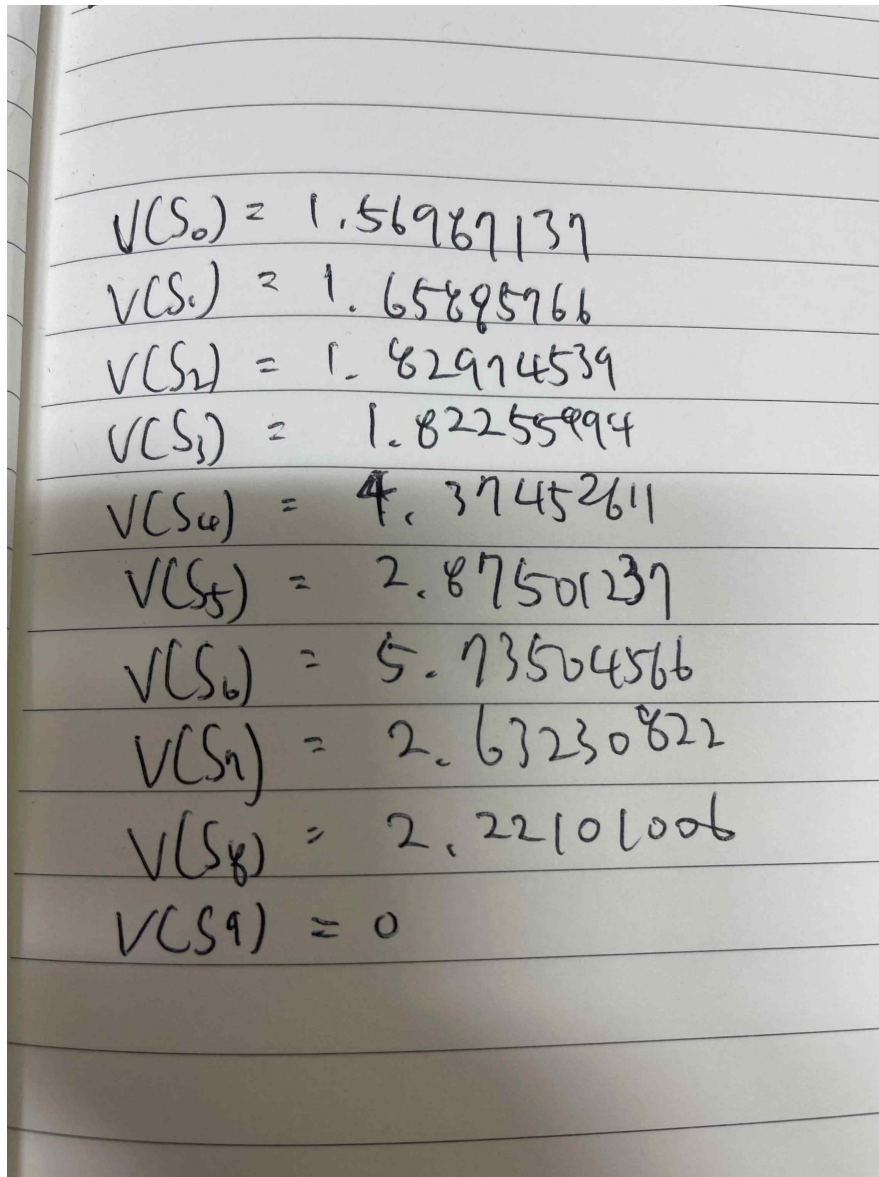 V(S0) = 1.56987137
V(S1) = 1.65895766
V(S2) = 1.82974539
V(S3) = 1.82255994
V(S4) = 4.37452611
V(S5) = 2.87501237
V(S6) = 5.73504566
V(S7) = 2.63230822
V(S8) = 2.22101006
V(S9) = 0